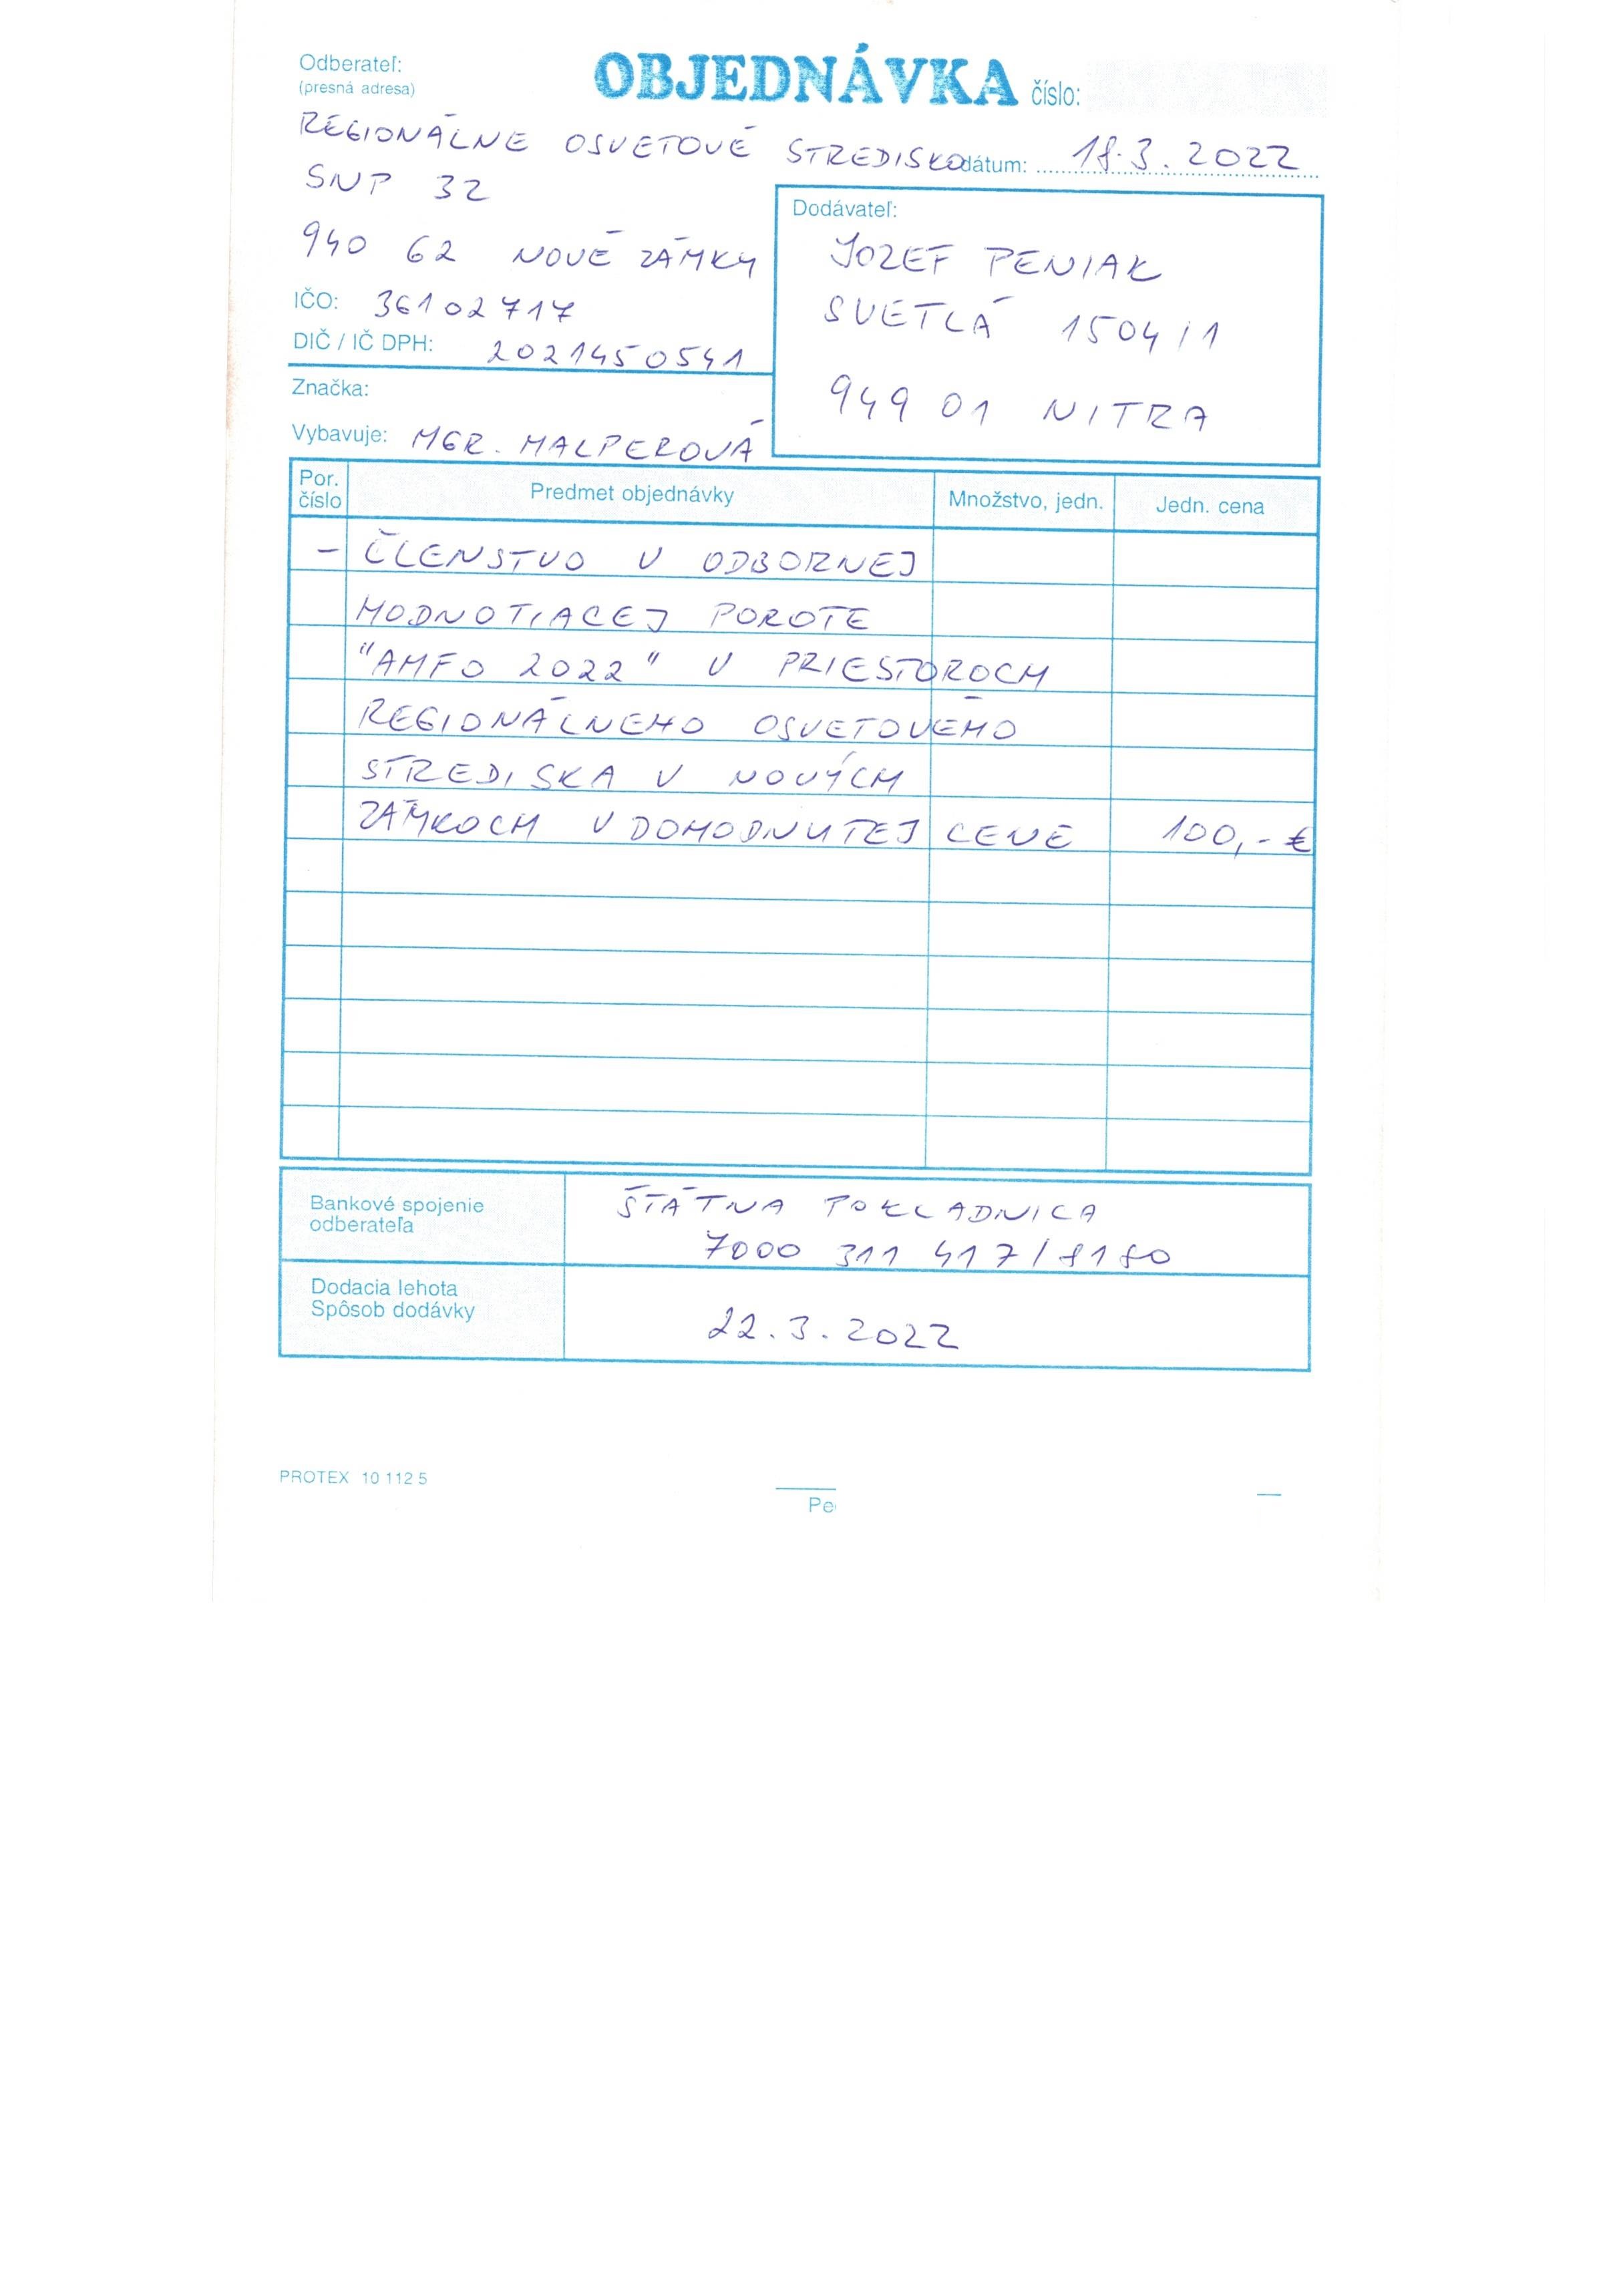 Odberateľ:
(presná adresa)
OBJEDNÁVKA číslo:
REGIONÁLNE OSVETOVÉ STREDISKO
dátum: 18.3.2022
SNP 32
940 62 NOVÉ ZÁMKY
IČO: 36102717
DIČ / IČ DPH: 2021450541
Značka:
Vybavuje: MGR. MALPEROVÁ
Dodávateľ:
JOZEF PENIAK
SVETLÁ 1504/1
949 01 NITRA
Por. číslo Predmet objednávky Množstvo, jedn. Jedn. cena
– ČLENSTVO V ODBORNEJ
HODNOTIACEJ POROTE
"AMFO 2022" V PRIESTOROCH
REGIONÁLNEHO OSVETOVÉHO
STREDISKA V NOVÝCH
ZÁMKOCH V DOHODNUTEJ CENE 100,- €
Bankové spojenie
odberateľa
ŠTÁTNA POKLADNICA
7000 311 417/8180
Dodacia lehota
Spôsob dodávky
22.3.2022
PROTEX 10 112 5
Pe